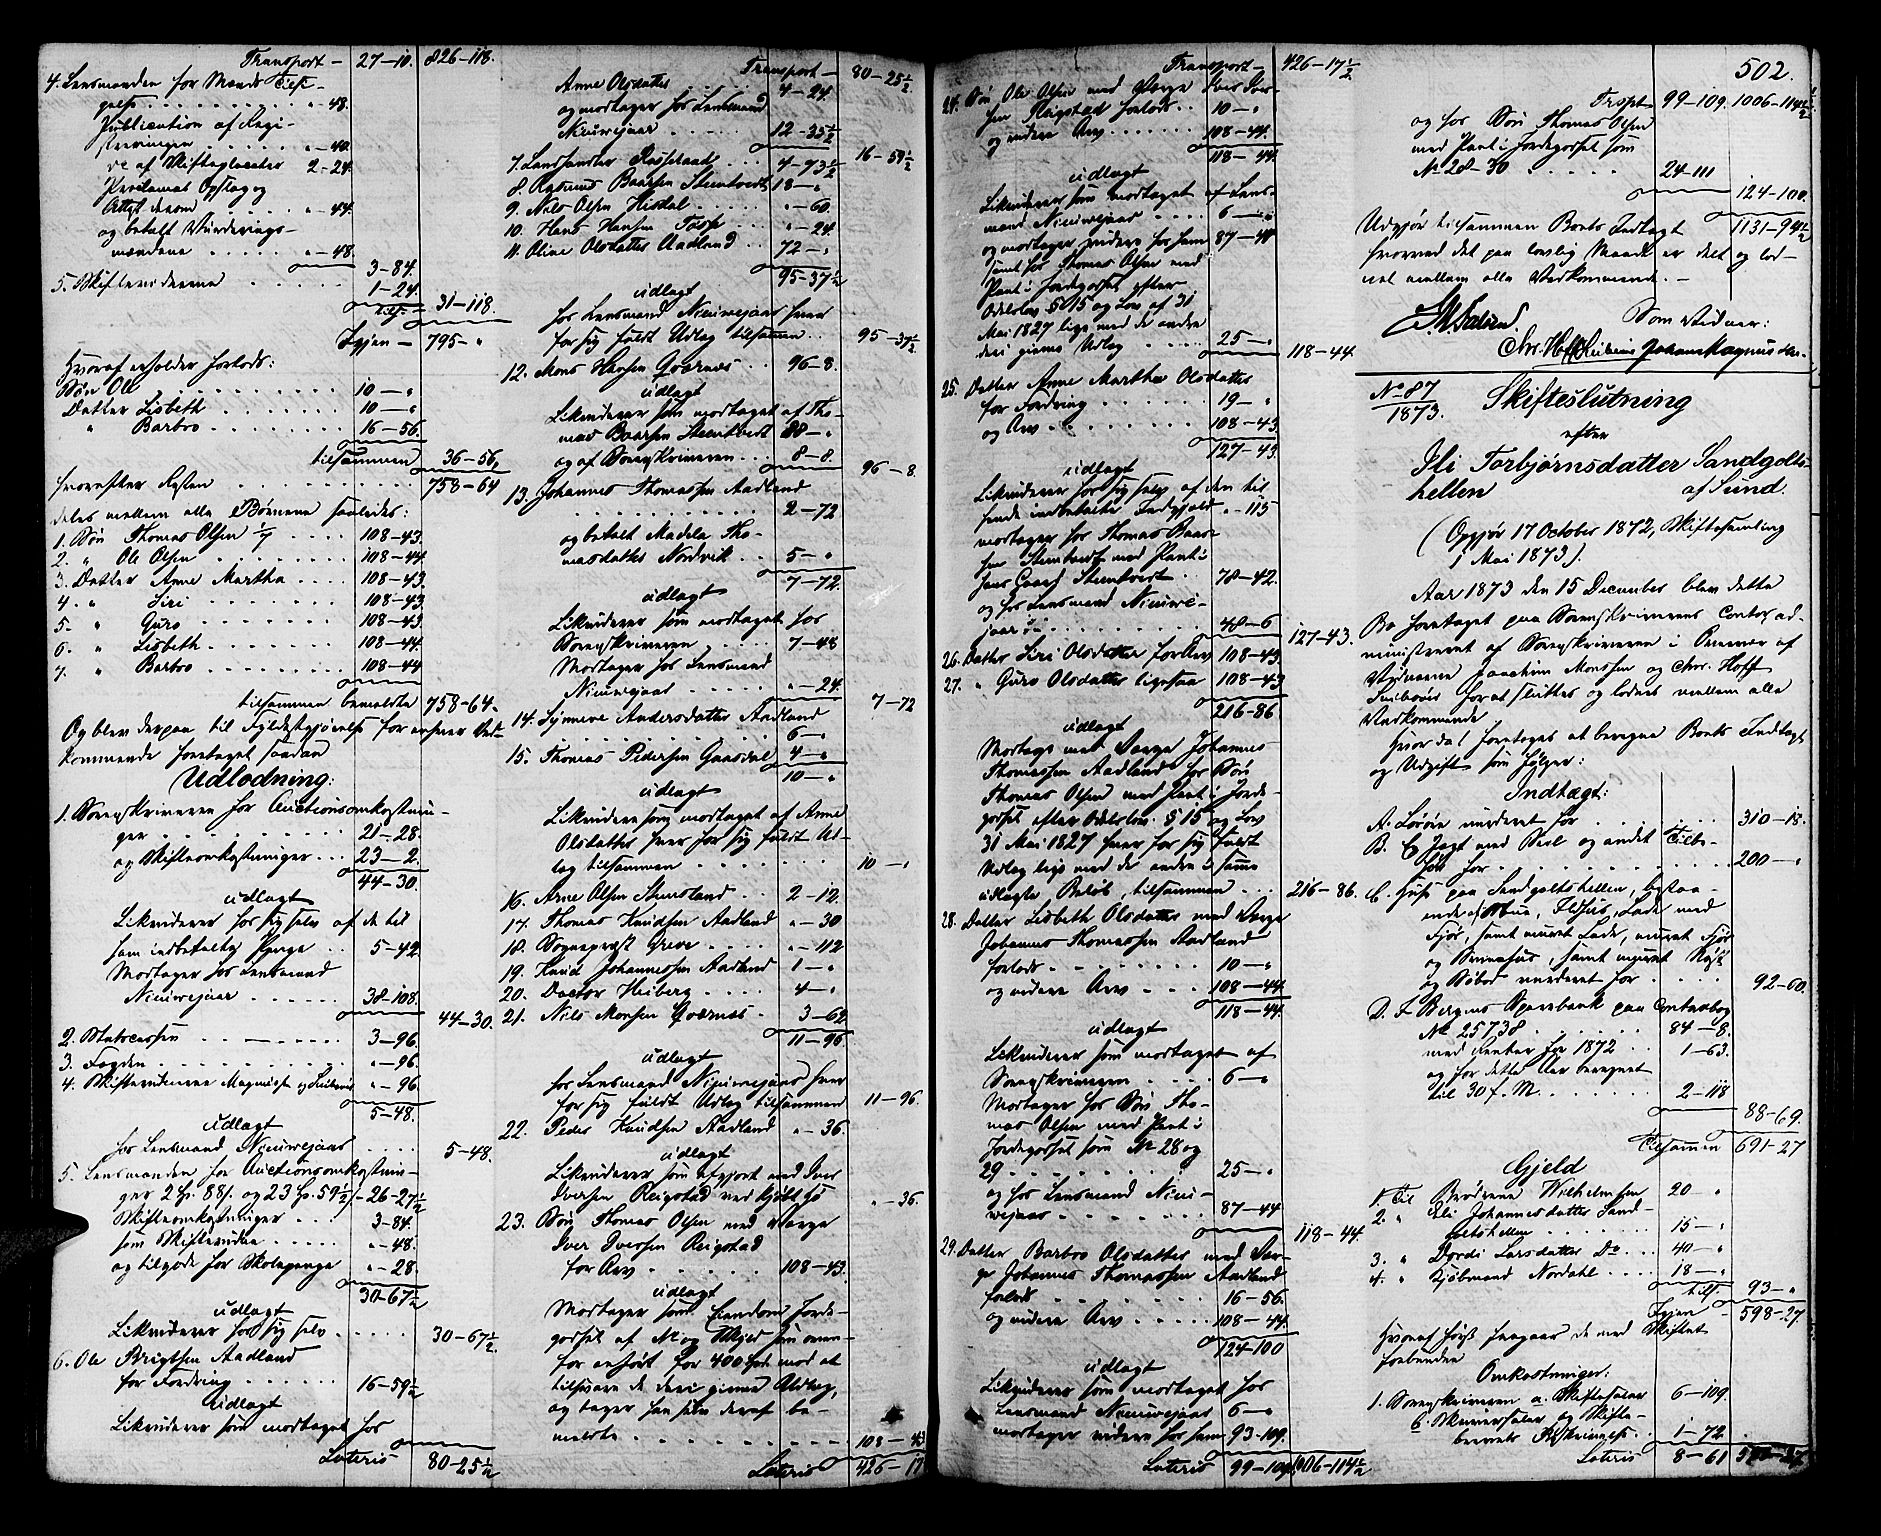 Transport - 27-10. 826-118.
4. Lensmanden for Mands Tilsi-
gelse . . . . „-48.
Publication af Regi-
streringen . . . „-40.
do af Skifteglocater 2-24.
Proclamas Opslag og
Attest derom . . . „-44.
og betalt Vurderings-
mændene . . . . „-48.
3-84.
5. Skiftevidnerne . . . . 1-24.
tils. 31-118.
Igjen - 795-„
Hvoraf erholder forlods:
Søn Ole . . . . 10-„
Datter Lisbeth . . . . 10-„
„ Barbro . . . . 16-56.
tilsammen 36-56.
hvorefter Resten . . . . 758-64
deles mellem alle Børnene saaledes:
1. Søn Thomas Olsen 1/7 . . . 108-43.
2. „ Ole Olsen . . . . 108-44
3. Datter Anne Martha . . . . 108-43.
4. „ Siri . . . . 108-43
5. „ Guro . . . . 108-43
6. „ Lisbeth . . . . 108-44.
7. „ Barbro . . . . 108-44
tilsammen bemeldte 758-64.
Og blev derpaa til Fyldestgjørelse for enhver Ved-
kommende foretaget saadan
Udlodning:
1. Sorenskriveren for Auctionsomkostnin-
ger . . . . 21-28.
og Skifteomkostninger . . . 23-2.
44-30.
udlagt
Likviderer hos sig selv af de til
ham indbetalte Penge . . 5-42.
Modtager hos Lensmand
Nieuwejaar . . . . 38-108.
44-30.
2. Statscassen . . . . 3-96.
3. Fogden . . . . „-96.
4. Skiftevidnerne Magnussen og Leibnis „-96
5-48.
udlagt
hos Lensmand Nieuwejaar . . . . 5-48.
5. Lensmanden for Auctionsomkostnin-
ger 2 Sp. 88 s. og 23 Sp. 59½ s. - 26-27½
Skifteomkostninger . . . 3-84.
som Skiftevidne . . . . „-48.
og tilgode for Skolepenge „-28.
30-67½
udlagt
Likviderer hos sig selv . . . . 30-67½
6. Ole Brigtsen Aadland
for Fordring . . . . 16-59½
udlagt
Likviderer som modtaget hos
Lateris 80-25½
Transport - 80-25½
Anne Olsdatter . . . . 4-24.
og modtager hos Lensmand
Nieuwejaar . . . . 12-35½
16-59½
7. Lenshandler Rosseland . . . 4-73½
8. Rasmus Baarsen Stemtvedt 18-„
9. Nils Olsen Hisdal . . . „-60.
10. Hans Hansen Tosse . . . „-24.
11. Oline Olsdatter Aadland . . 72-„
95-37½
udlagt
hos Lensmand Nieuwejaar hver
for sig fuldt Udlag tilsammen . . 95-37½
12. Mons Hansen Goernes . . 96-8.
udlagt
Likviderer som modtaget af Tho-
mas Baarsen Stemtvedt 88-„
og af Sorenskriveren . . . 8-8.
96-8.
13. Johannes Thomassen Aadland
. . . . 2-72
og betalt Madela Tho-
masdatter Nordvik . . 5-„
7-72.
udlagt
Likviderer som modtaget hos
Sorenskriveren . . . . 7-48
Modtager hos Lensmand
Nieuwejaar . . . . „-24.
7-72
14. Synneve Andersdatter Aadland
. . . . 6-„
15. Thomas Pedersen Gaasdal 4-„
10-„
udlagt
Likviderer som modtaget af Anne
Olsdatter hver for sig fuldt Ud-
lag tilsammen . . . . 10-„
16. Arne Olsen Stensland . . 2-12.
17. Thomas Knudsen Aadland „-30
18. Sognepræst Greve . . . „-112
19. Knud Johannessen Aadland 1-„
20. Doctor Heiberg . . . . 4-„
21. Nils Monsen Goernes . . 3-62
11-96
udlagt
hos Lensmand Nieuwejaar hver
for sig fuldt Udlag tilsammen 11-96.
22. Peder Knudsen Aadland „-36.
udlagt
Likviderer som afgjort med Iver
Iversen Reigstad ved Kjøbt Hø „-36.
23. Søn Thomas Olsen med Værge
Iver Iversen Reigstad
for Arv . . . . 108-43.
udlagt
Modtager som Eiendom Jorde-
godset af No og Skyld som oven-
for anført for 400 Spd. mod at
tilsvare de deri givne Udlæg,
og tager han selv deraf be-
meldte . . . . 108-43
Lateris 426-17
Transport - 426-17½
24. Søn Ole Olsen med Værge Iver Iver-
sen Reigstad forlods . . 10-„
og videre Arv . . . . 108-44.
118-44.
udlagt
Likviderer som modtaget af Lens-
mand Nieuwejaar . . . . 6-„
og modtager videre hos ham 87-44
samt hos Thomas Olsen med
Pant i Jordegodset efter
Odelslov § 15 og Lov af 31
Mai 1827 lige med de andre
deri givne Udlæg . . . 25-„
118-44.
25. Datter Anne Martha Olsdatter
for Fordring . . . . 19-„
og Arv . . . . 108-43.
127-43
udlagt
Likviderer hos sig selv af den til
hende indbetalte Indgjæld „-115
modtager hos Thomas Baar-
sen Stemtvedt med Pant i
hans Gaard Stemtvedt . . 78-42.
og hos Lensmand Nieuwe-
jaar . . . . 48-6
127-43.
26. Datter Siri Olsdatter for Arv 108-43.
27. „ Guro Olsdatter ligesaa 108-43
216-86.
udlagt
Modtage med Værge Johannes
Thomassen Aadland hos Søn
Thomas Olsen med Pant i Jorde-
godset efter Odelslov § 15 og Lov
31 Mai 1827 hver for sig fuldt
Udlag lige med de andre i samme
udlagte Beløb, tilsammen . . . 216-86.
28. Datter Lisbeth Olsdatter med Værge
Johannes Thomassen Aadland
forlods . . . . 10-„
og videre Arv . . . 108-44.
118-44.
udlagt
Likviderer som modtaget af
Sorenskriveren . . . . 6-„
Modtager hos Søn Tho-
mas Olsen med Pant i
Jordegodset som No 28 og
29 . . . . 25-„
og hos Lensmand Nieu-
wejaar . . . . 87-44
118-44.
29. Datter Barbro Olsdatter med Vær-
ge Johannes Thomassen Aadland
forlods . . . . 16-56.
og videre Arv . . . 108-44.
124-100
udlagt
Likviderer som modtaget hos
Lensmand Nieuwejaar 6-„
modtager videre hos ham 93-109.
Lateris 99-109. 1006-114½
502.
Trspt 99-109. 1006-114½
og hos Søn Thomas Olsen
med Pant i Jordegodset som
No 28-30 . . . . 24-111
124-100.
Udgjør tilsammen Boets Indtægt 1131-94½
hvorved det paa lovlig Maade er delt og lod-
net mellem alle Vedkommende. -
Som Vidner:
Chr. Hoff Leibnis Johan Magnussen.
No 87
1873.
Skifteslutning
efter
Eli Torbjørnsdatter Sandgolts-
hellen af Sund.
(Opgjør 17 October 1872, Skiftesamling
1 Mai 1873).
Aar 1873 den 15 December blev dette
Bo foretaget paa Sorenskriverens Contor ad-
ministreret af Sorenskriveren i Overvær af
Vidnerne Joachim Monssen og Chr. Hoff
Leibnis for at sluttes og lodnes mellem alle
Vedkommende
Hvorda foretoges at beregne Boets Indtægt
og Udgift som følger:
Indtægt:
A. Løsøre vurderet for . . . . 310-18.
B. E Jagt med Seil og andet Tilbe-
hør for . . . . 200-„
C. Huse paa Sandgoltshellen, bestaa-
ende af Stue, Ildhus, Lade med
Fjøs, samt muret Lade, muret Fjøs
og Svinehus, samt muret Nøst
og Søbod vurderet for . . . . 92-60.
D. I Bergens Sparebank paa Contrabog
No 25738 . . . . 84-8.
med Renter for 1872 . . 1-63.
og for dette Aar beregnet
til 30 f. M. . . . . 2-118
88-69.
Tilsammen 691-27
Gjeld
1. Til Brødrene Wilhelmsen 20-„
2. „ Eli Johannesdatter Sand-
goltshellen . . . . 15-„
3. „ Dordi Larsdatter Do . . . 40-„
4. „ Kjøbmand Nordahl . . . . 18-„
tils. 93-„
Igjen 598-27.
Hvoraf først fragaar de med Skiftet
forbundne
Omkostninger:
1. Sorenskriveren a. Skiftesalær 6-109.
b. Skriversalær og Skifte-
brevets Beskrivelse . . 1-72.
Lateris 8-61